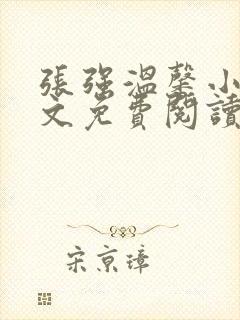 張強溫馨小
文免費閱讀
宋京璋